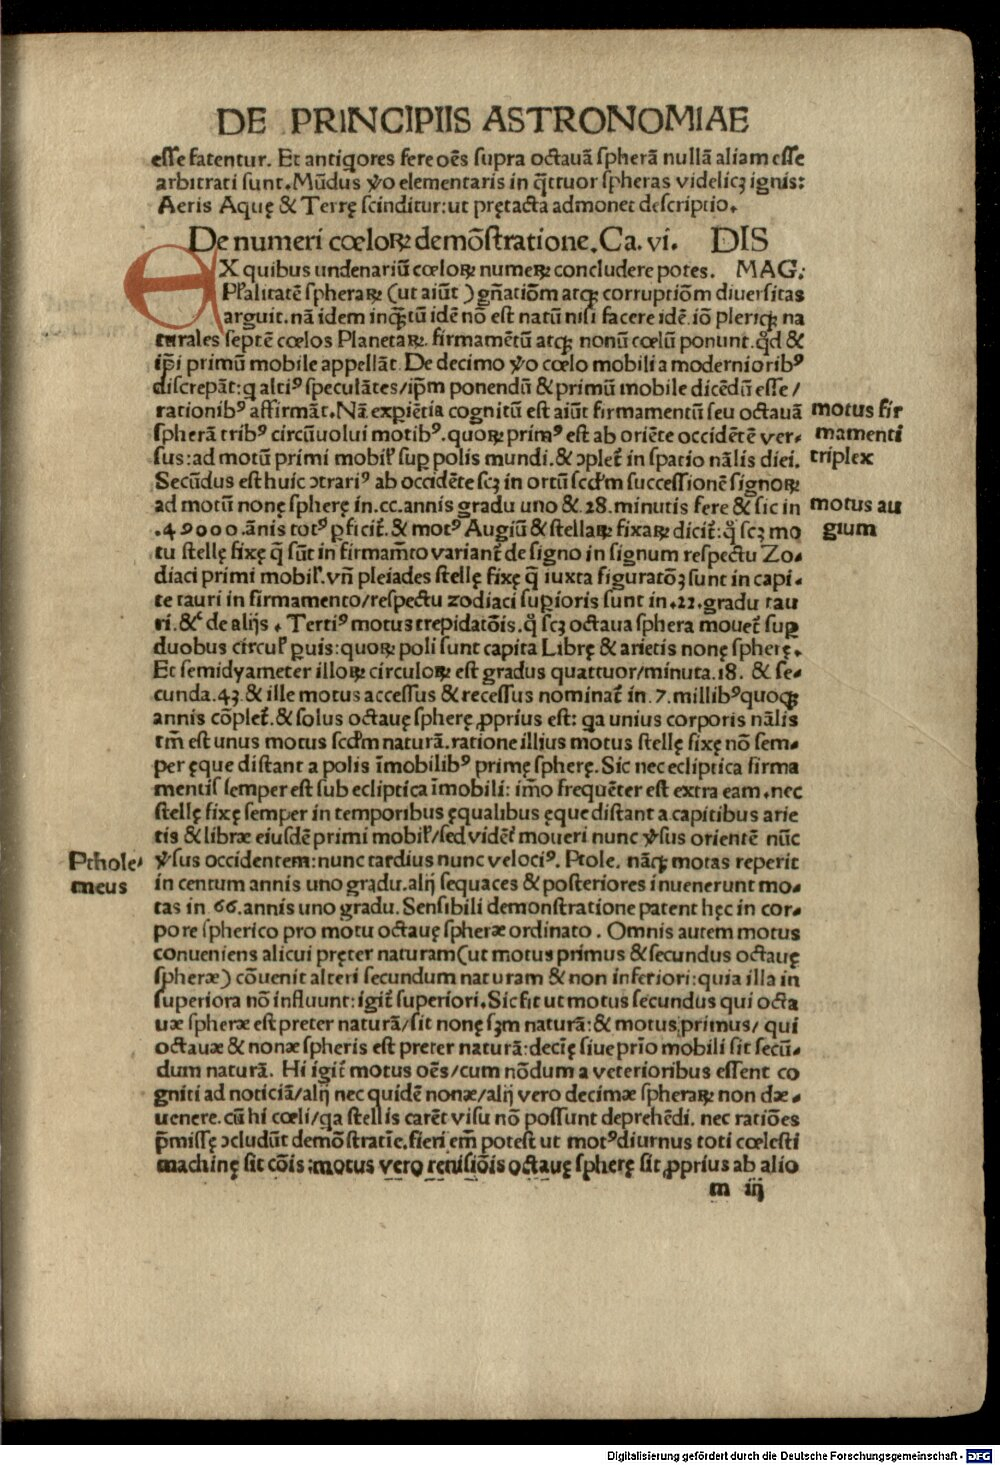 DE PRINCIPIIS ASTRONOMIAE
esse fatentur. Et antiqores fere oẽs supra octauã spherã nullã aliam esse
arbitrati sunt. Mũdus ꝟo elementaris in q̃ttuor spheras videlicꝫ ignis:
Aeris Aquę & Terrę scinditur: ut prętacta admonet descriptio.
De numeri cœloꝝ demõstratione. Ca. vi. DIS
EX quibus undenariũ cœloꝝ numeꝝ concludere potes. MAG:
Pl̃alitatẽ spheraꝝ (ut aiũt) gñatiõm atqꝫ corruptiõm diuersitas
arguit. nã idem inq̃tũ idẽ nõ est natũ nisi facere idẽ. iõ pleriqꝫ na
turales septẽ cœlos Planetaꝝ. firmamẽtũ atqꝫ nonũ cœlũ ponunt. qd̃ &
ip̃i primũ mobile appellãt. De decimo ꝟo cœlo mobili a modernioribꝰ
discrepãt: q altiꝰ speculãtes/ip̃m ponendũ & primũ mobile dicẽdũ esse/
rationibꝰ affirmãt. Nã expiẽtia cognitũ est aiũt firmamentũ seu octauã
motus fir
spherã tribꝰ circũuolui motibꝰ. quoꝝ primꝰ est ab oriẽte occidẽtẽ ver-
mamenti
sus: ad motũ primi mobil̃ suꝑ polis mundi. & ɔplet̃ in spatio nãlis diei.
triplex
Secũdus est huic ɔtrariꝰ ab occidẽte scꝫ in ortũ scd̃m successionẽ signoꝝ
ad motũ nonę spherę in .cc. annis gradu uno & .28. minutis fere & sic in
motus au
.49000. ãnis totꝰ ꝑficit̃. & motꝰ Augiũ & stellaꝝ fixaꝝ dicit̃: q̃ scꝫ mo
gium
tu stellę fixę q̃ sũt in firmam̃to variant̃ de signo in signum respectu Zo-
diaci primi mobil̃. vñ pleiades stellę fixę q̃ iuxta figuratõꝫ sunt in capi-
te tauri in firmamento/respectu zodiaci suꝑioris sunt in .22. gradu tau
ri. &c̃ de alijs. Tertiꝰ motus trepidatõis. q̃ scꝫ octaua sphera mouet̃ suꝑ
duobus circul̃ ꝑuis: quoꝝ poli sunt capita Librę & arietis nonę spherę.
Et semidyameter illoꝝ circuloꝝ est gradus quattuor/minuta .18. & se-
cunda .43 & ille motus accessus & recessus nominat̃ in .7. millibꝰ quoqꝫ
annis cõplet̃. & solus octauę spherę ꝓprius est: qa unius corporis nãlis
tm̃ est unus motus scd̃m naturã. ratione illius motus stellę fixę nõ sem-
per ęque distant a polis ĩmobilibꝰ primę spherę. Sic nec ecliptica firma
mentis semper est sub ecliptica ĩmobili: im̃o frequẽter est extra eam. nec
stellę fixę semper in temporibus ęqualibus ęque distant a capitibus arie
tis & libræ eiusdẽ primi mobil̃/sed vidẽt̃ moueri nunc ꝟsus orientẽ nũc
ꝟsus occidentem: nunc tardius nunc velociꝰ. Ptole. nãqꝫ motas reperit
Pthole/
in centum annis uno gradu. alij sequaces & posteriores inuenerunt mo-
meus
tas in 66. annis uno gradu. Sensibili demonstratione patent hęc in cor-
pore spherico pro motu octauę spheræ ordinato. Omnis autem motus
conueniens alicui pręter naturam (ut motus primus & secundus octauę
spheræ) cõuenit alteri secundum naturam & non inferiori: quia illa in
superiora nõ influunt: igit̃ superiori. Sic fit ut motus secundus qui octa
uæ spheræ est preter naturã/sit nonę sꝫm naturã: & motus primus/ qui
octauæ & nonæ spheris est preter naturã: decĩę siue prĩo mobili sit secũ-
dum naturã. Hi igit̃ motus oẽs/cum nõdum a veterioribus essent co
gniti ad noticiã/alij nec quidẽ nonæ/alij vero decimæ spheraꝝ non dæ-
uenere. cũ hi cœli/qa stellis carẽt visu nõ possunt deprehẽdi. nec ratiões
p̃missę ɔcludũt demõstratĩe. fieri em̃ potest ut motꝰ diurnus toti cœlesti
machinę sit cõis: motus vero reuisiõis octauę spherę sit ꝓprius ab alio
m iij
Digitalisierung gefördert durch die Deutsche Forschungsgemeinschaft - DFG